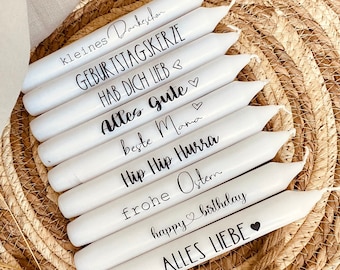 kleines Dankeschön
GEBURTSTAGSKERZE
HAB DICH LIEB
Alles Gute
beste Mama
Hip Hip Hurra
frohe Ostern
happy birthday
ALLES LIEBE